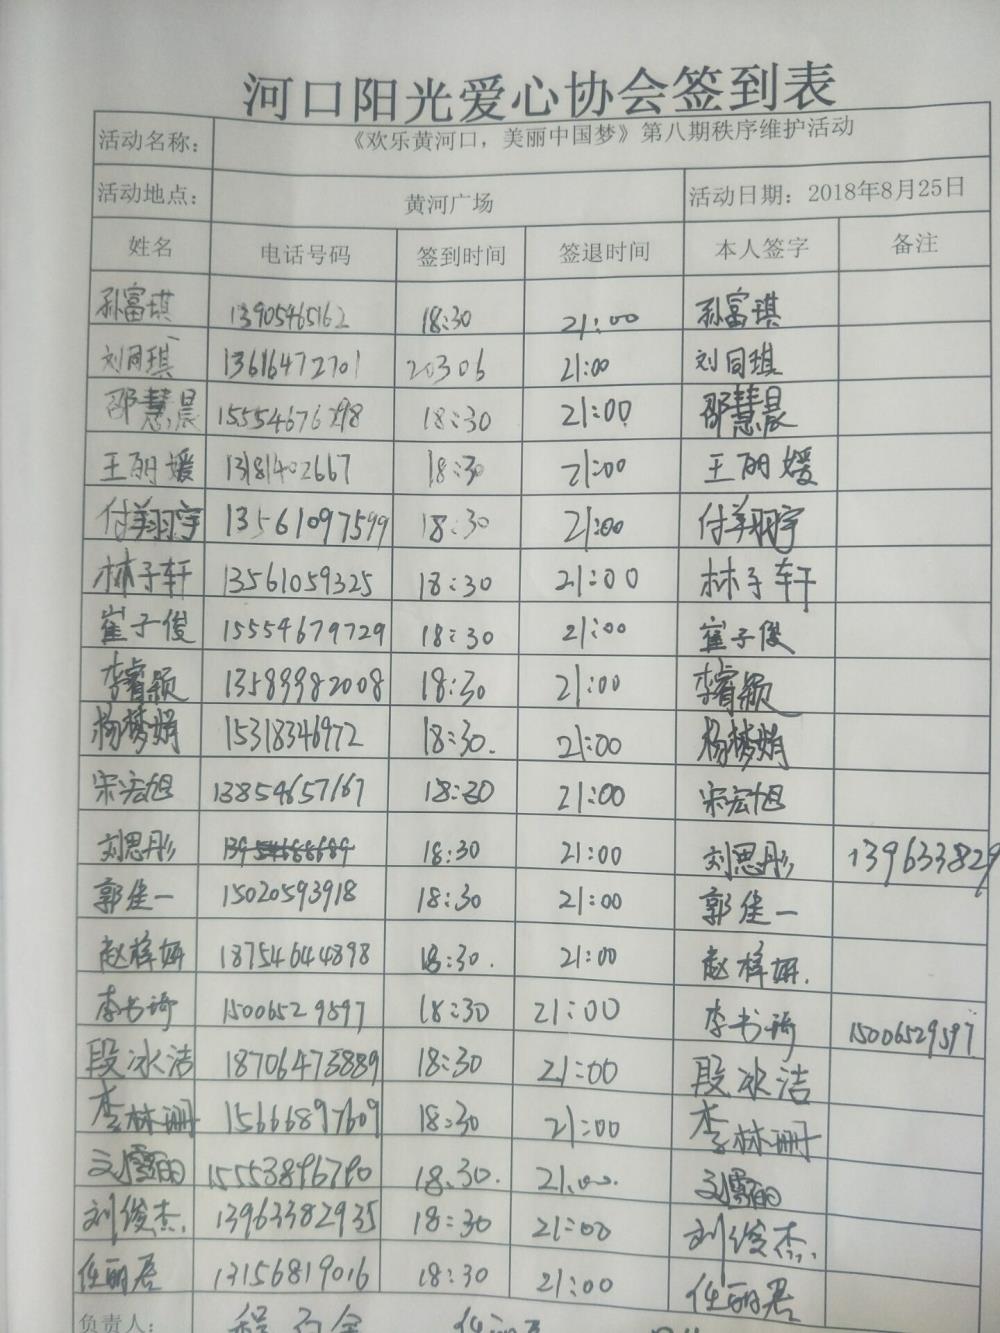 河口阳光爱心协会签到表
活动名称： 《欢乐黄河口，美丽中国梦》第八期秩序维护活动
活动地点： 黄河广场 活动日期：2018年8月25日
姓名 电话号码 签到时间 签退时间 本人签字 备注
孙富琪 13905465162 18:30 21:00 孙富琪
刘同琪 13616472701 20306 21:00 刘同琪
邵慧晨 18:30 21:00 邵慧晨
王丽媛 13181402667 18:30 21:00 王丽媛
付翔宇 13561097599 18:30 21:00 付翔宇
林子轩 13561059325 18:30 21:00 林子轩
崔子俊 15554679729 18:30 21:00 崔子俊
李睿颖 13589982008 18:30 21:00 李睿颖
杨梦娟 15318346972 18:30. 21:00 杨梦娟
宋宏旭 13854657167 18:30 21:00 宋宏旭
刘思彤 18:30 21:00 刘思彤 139633829
郭佳一 15020593918 18:30 21:00 郭佳一
赵梓妍 18754644898 18:30. 21:00 赵梓妍.
李书琦 15006529597 18:30 21:00 李书琦 15006529597
段冰洁 18706473889 18:30 21:00 段冰洁
李林珊 15666897609 18:30 21:00 李林珊
15553896790 18.30. 21:00.
刘俊杰. 13963382935 18:30 21:00 刘俊杰.
任丽君 13156819016 18:30 21:00 任丽君
负责人：